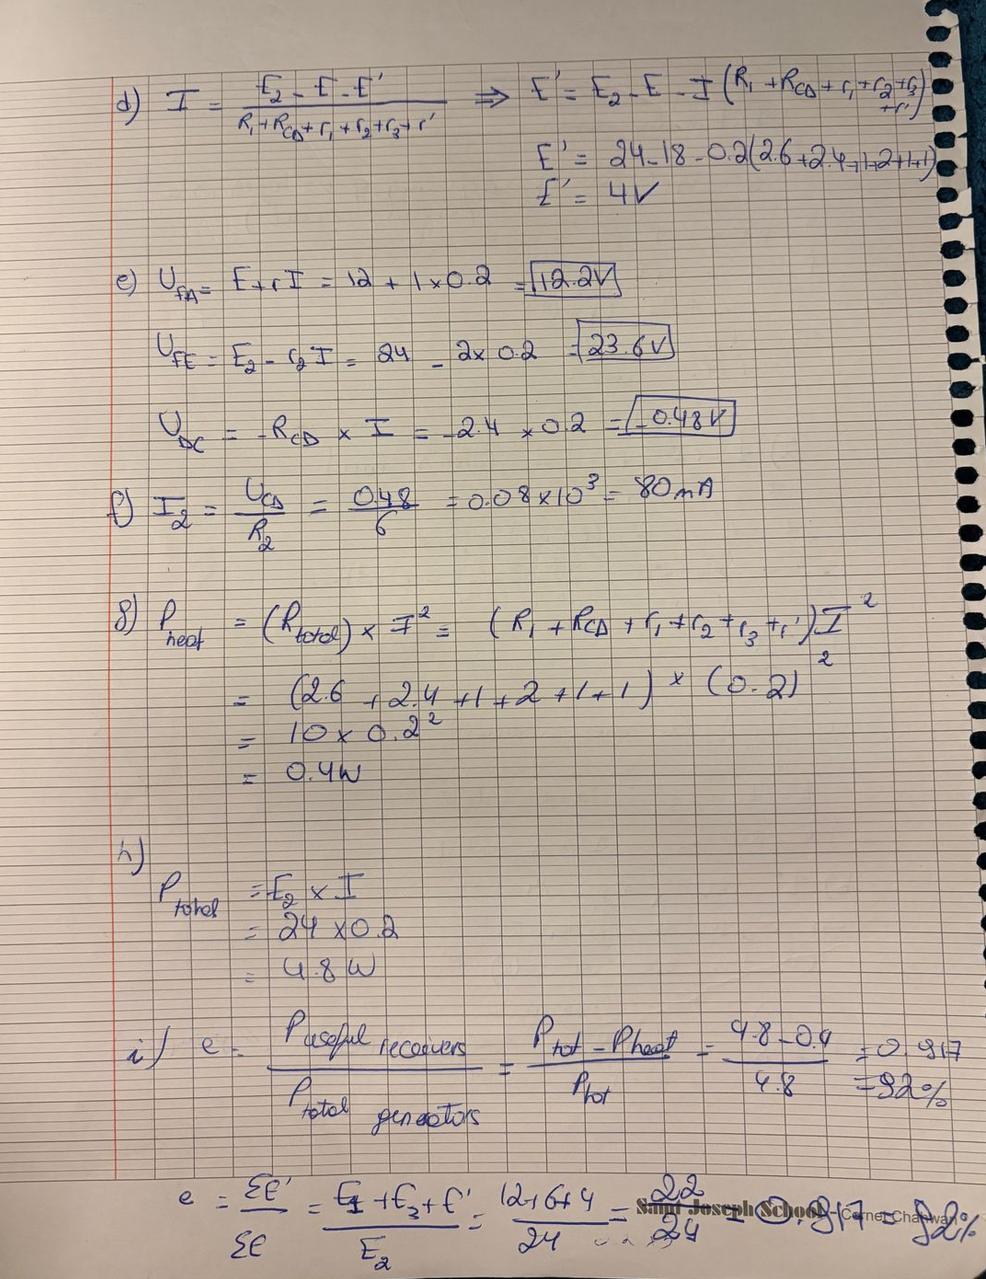 d) I = (E₂ - E - E') / (R₁ + R_CD + r₁ + r₂ + r₃ + r') ⇒ E' = E₂ - E - I (R₁ + R_CD + r₁ + r₂ + r₃ + r')
E' = 24 - 18 - 0.2(2.6 + 2.4 + 1 + 2 + 1 + 1)
E' = 4V
e) U_FA = E + rI = 12 + 1 × 0.2 = 12.2V
U_FE = E₂ - r₂ I = 24 - 2 × 0.2 = 23.6V
U_DC = -R_CD × I = -2.4 × 0.2 = -0.48V
f) I₂ = U_CD / R₂ = 0.48 / 6 = 0.08 × 10³ = 80 mA
g) P_heat = (R_total) × I² = (R₁ + R_CD + r₁ + r₂ + r₃ + r') I²
= (2.6 + 2.4 + 1 + 2 + 1 + 1) × (0.2)²
= 10 × 0.2²
= 0.4W
h)
P_total = E₂ × I
= 24 × 0.2
= 4.8 W
i) e = P useful receivers / P total generators = (P_tot - P_heat) / P_tot = (4.8 - 0.4) / 4.8 = 0.917
= 92%
e = ΣE' / ΣE = (E₁ + E₃ + E') / E₂ = (12 + 6 + 4) / 24 = 22 / 24 = 0.917 = 92%
Saint Joseph School - Cornet Chahwan